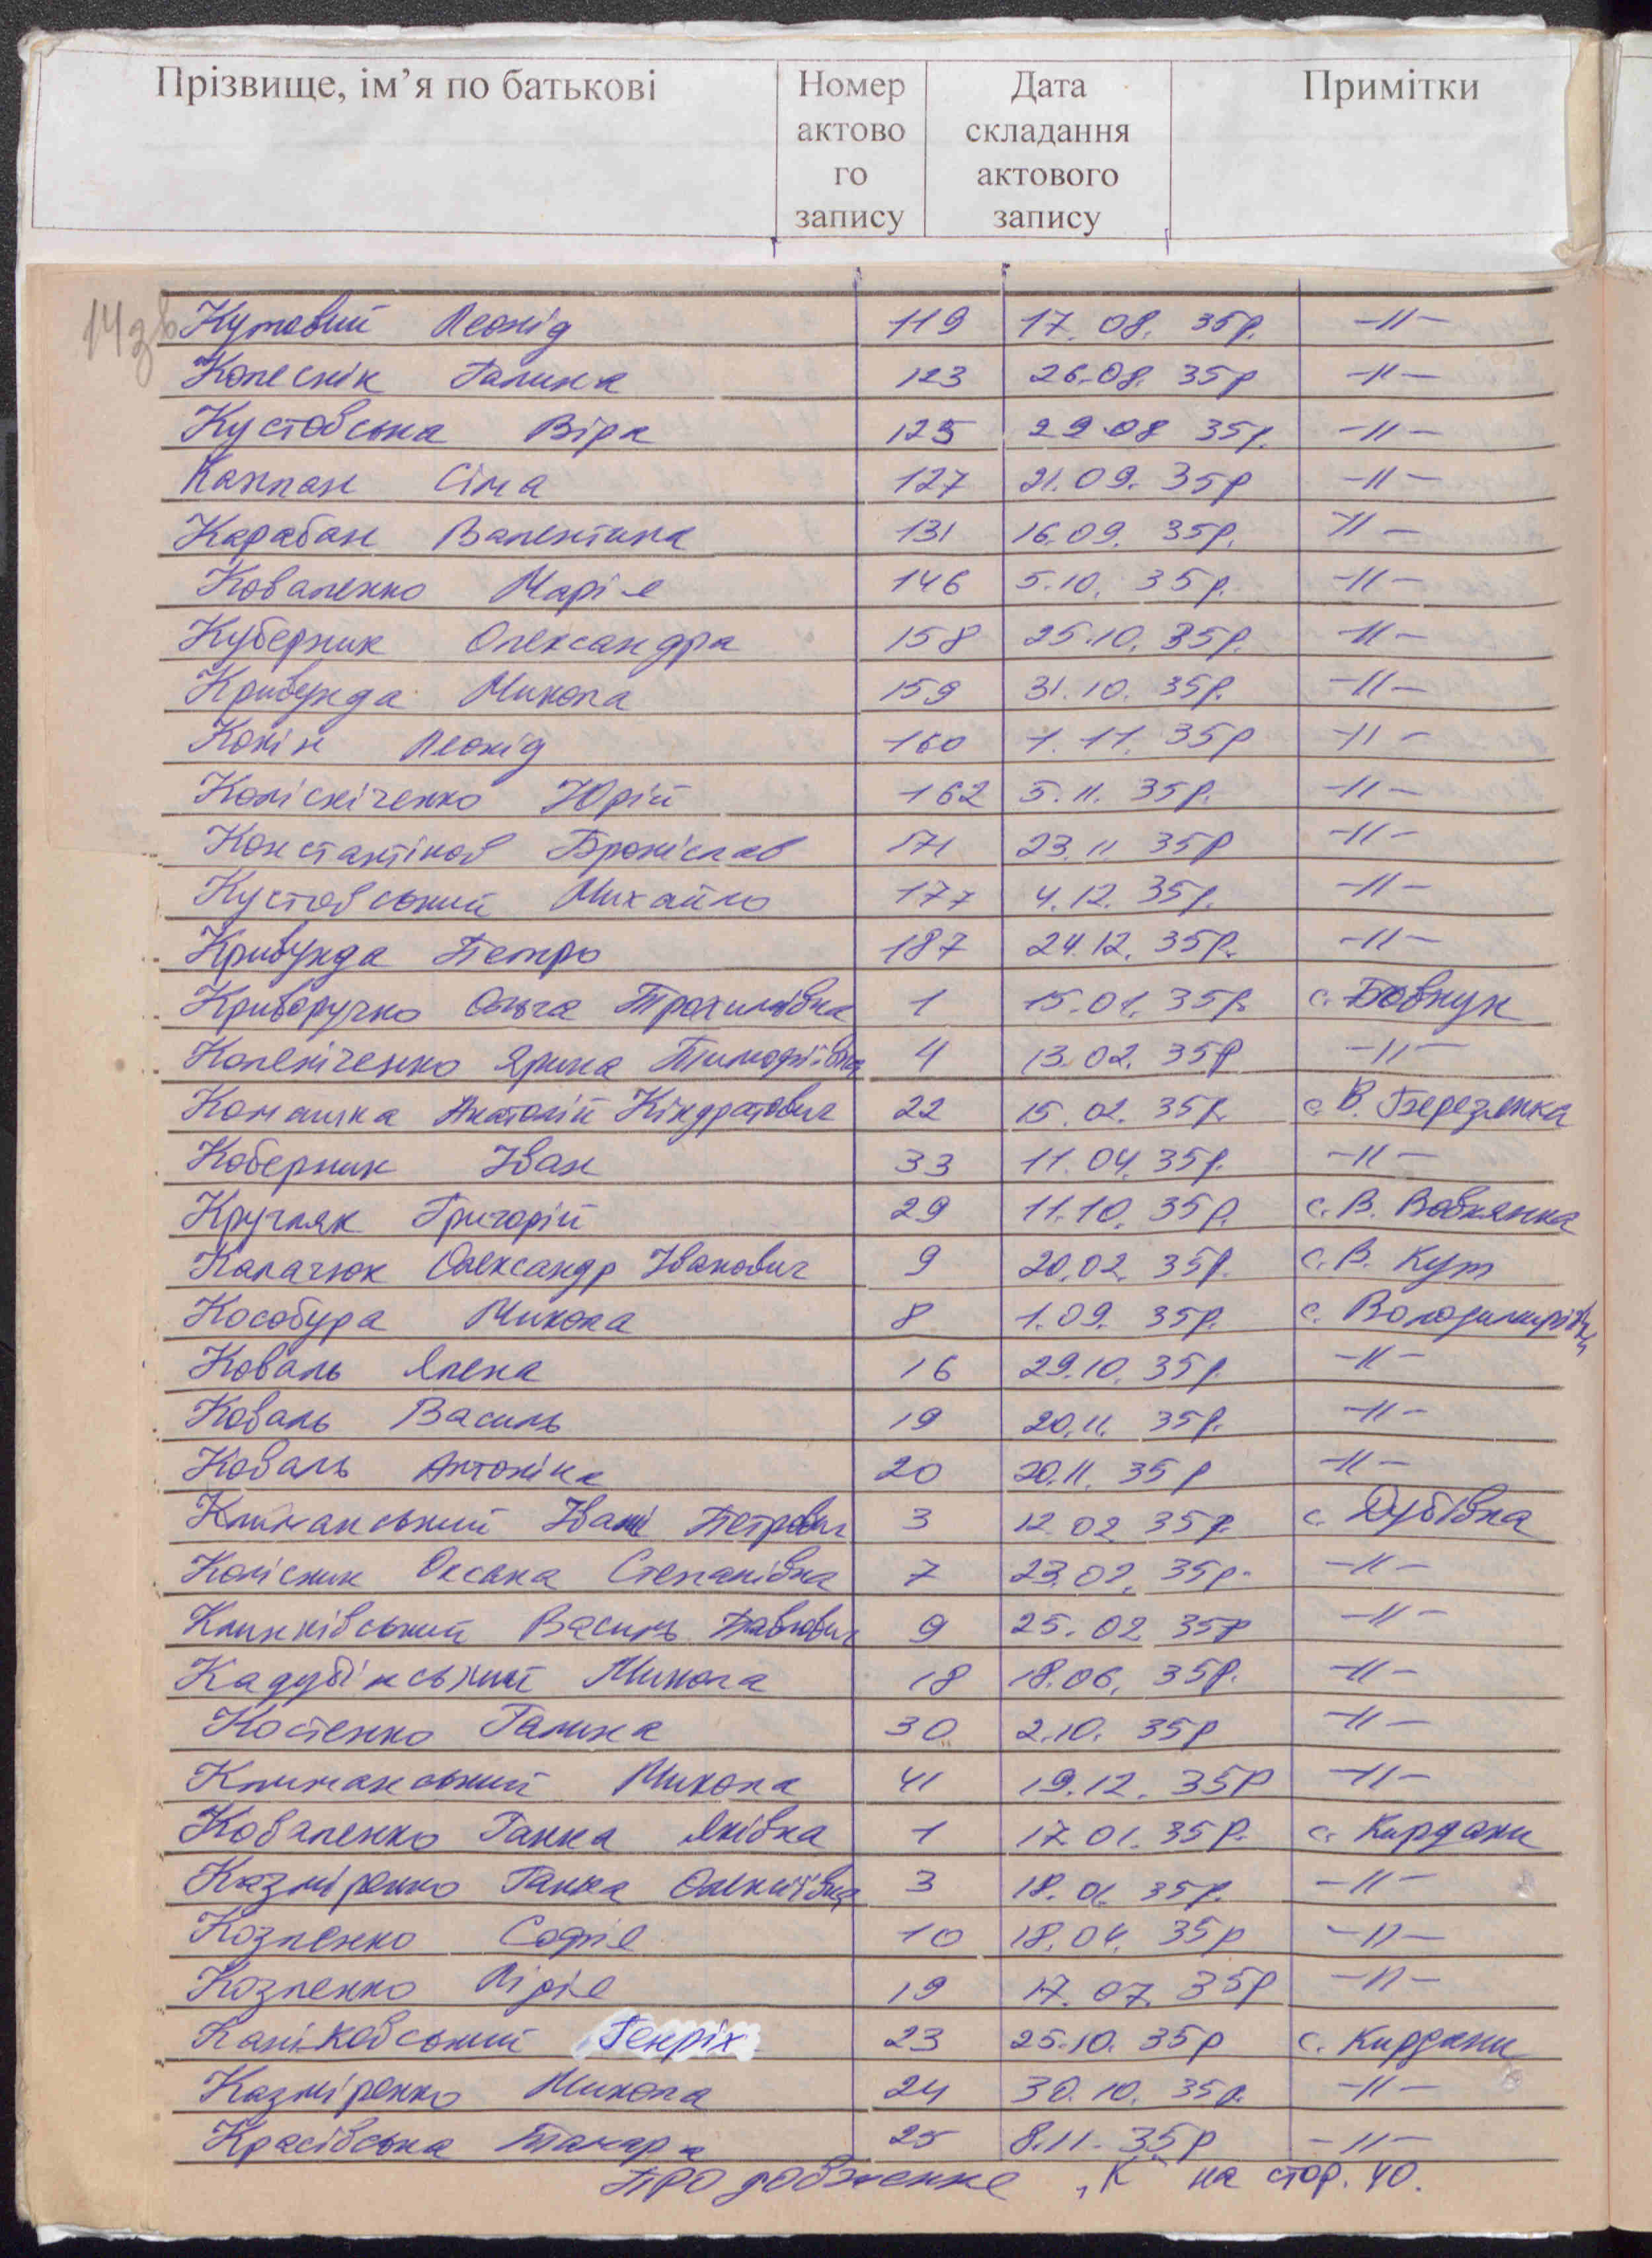 Прізвище, ім’я по батькові Номер Дата Примітки
актово складання
го актового
запису запису
14зв
Кутовий Леонід 119 17.08. 35р. -//-
Колеснік Галина 123 26.08. 35р -//-
Кустовська Віра 125 29.08 35р. -//-
Каплан Сіма 127 21.09. 35р -//-
Карабан Валентина 131 16.09. 35р. -//-
Коваленко Марія 146 5.10. 35р. -//-
Куберник Олександра 158 25.10. 35р. -//-
Кривунда Микола 159 31.10. 35р. -//-
Конін Леонід 160 1.11. 35р -//-
Колісніченко Юрій 162 5.11. 35р. -//-
Константінов Броніслав 171 23.11 35р -//-
Кустовський Михайло 177 4.12. 35р. -//-
Кривунда Петро 187 24.12. 35р. -//-
Криворучко Ольга Трохимівна 1 15.01. 35р. с. Бовкун
Коленіченко Ярина Тимофіївна 4 13.02. 35р -//-
Комашка Анатолій Кіндратович 22 15.02. 35р. с. В. Березянка
Коберник Іван 33 11.04. 35р. -//-
Кругляк Григорій 29 11.10. 35р. с. В. Вовнянка
Калачюк Олександр Іванович 9 20.02. 35р. с. В. Кут
Кособура Микола 8 1.09. 35р. с. Володимирівка
Коваль Олена 16 29.10. 35р. -//-
Коваль Василь 19 20.11. 35р. -//-
Коваль Антоніна 20 20.11. 35р -//-
Климанський Іван Петрович 3 12.02 35р. с. Дубівка
Колісник Оксана Степанівна 7 23.02. 35р. -//-
Клинківський Василь Павлович 9 25.02 35р -//-
Кадубінський Микола 18 18.06. 35р. -//-
Костенко Галина 30 2.10. 35р -//-
Климанський Микола 41 19.12. 35р -//-
Коваленко Ганна Яківна 1 17.01. 35р. с. Кирдани
Казміренко Ганна Олексіївна 3 18.01. 35р. -//-
Козленко Софія 10 18.04. 35р -//-
Козленко Лідія 19 17.07. 35р -//-
Каніковський Генріх 23 25.10. 35р с. Кирдани
Казміренко Микола 24 30.10. 35р. -//-
Красівська Тамара 25 8.11. 35р -//-
Продовження „К" на стор. 40.